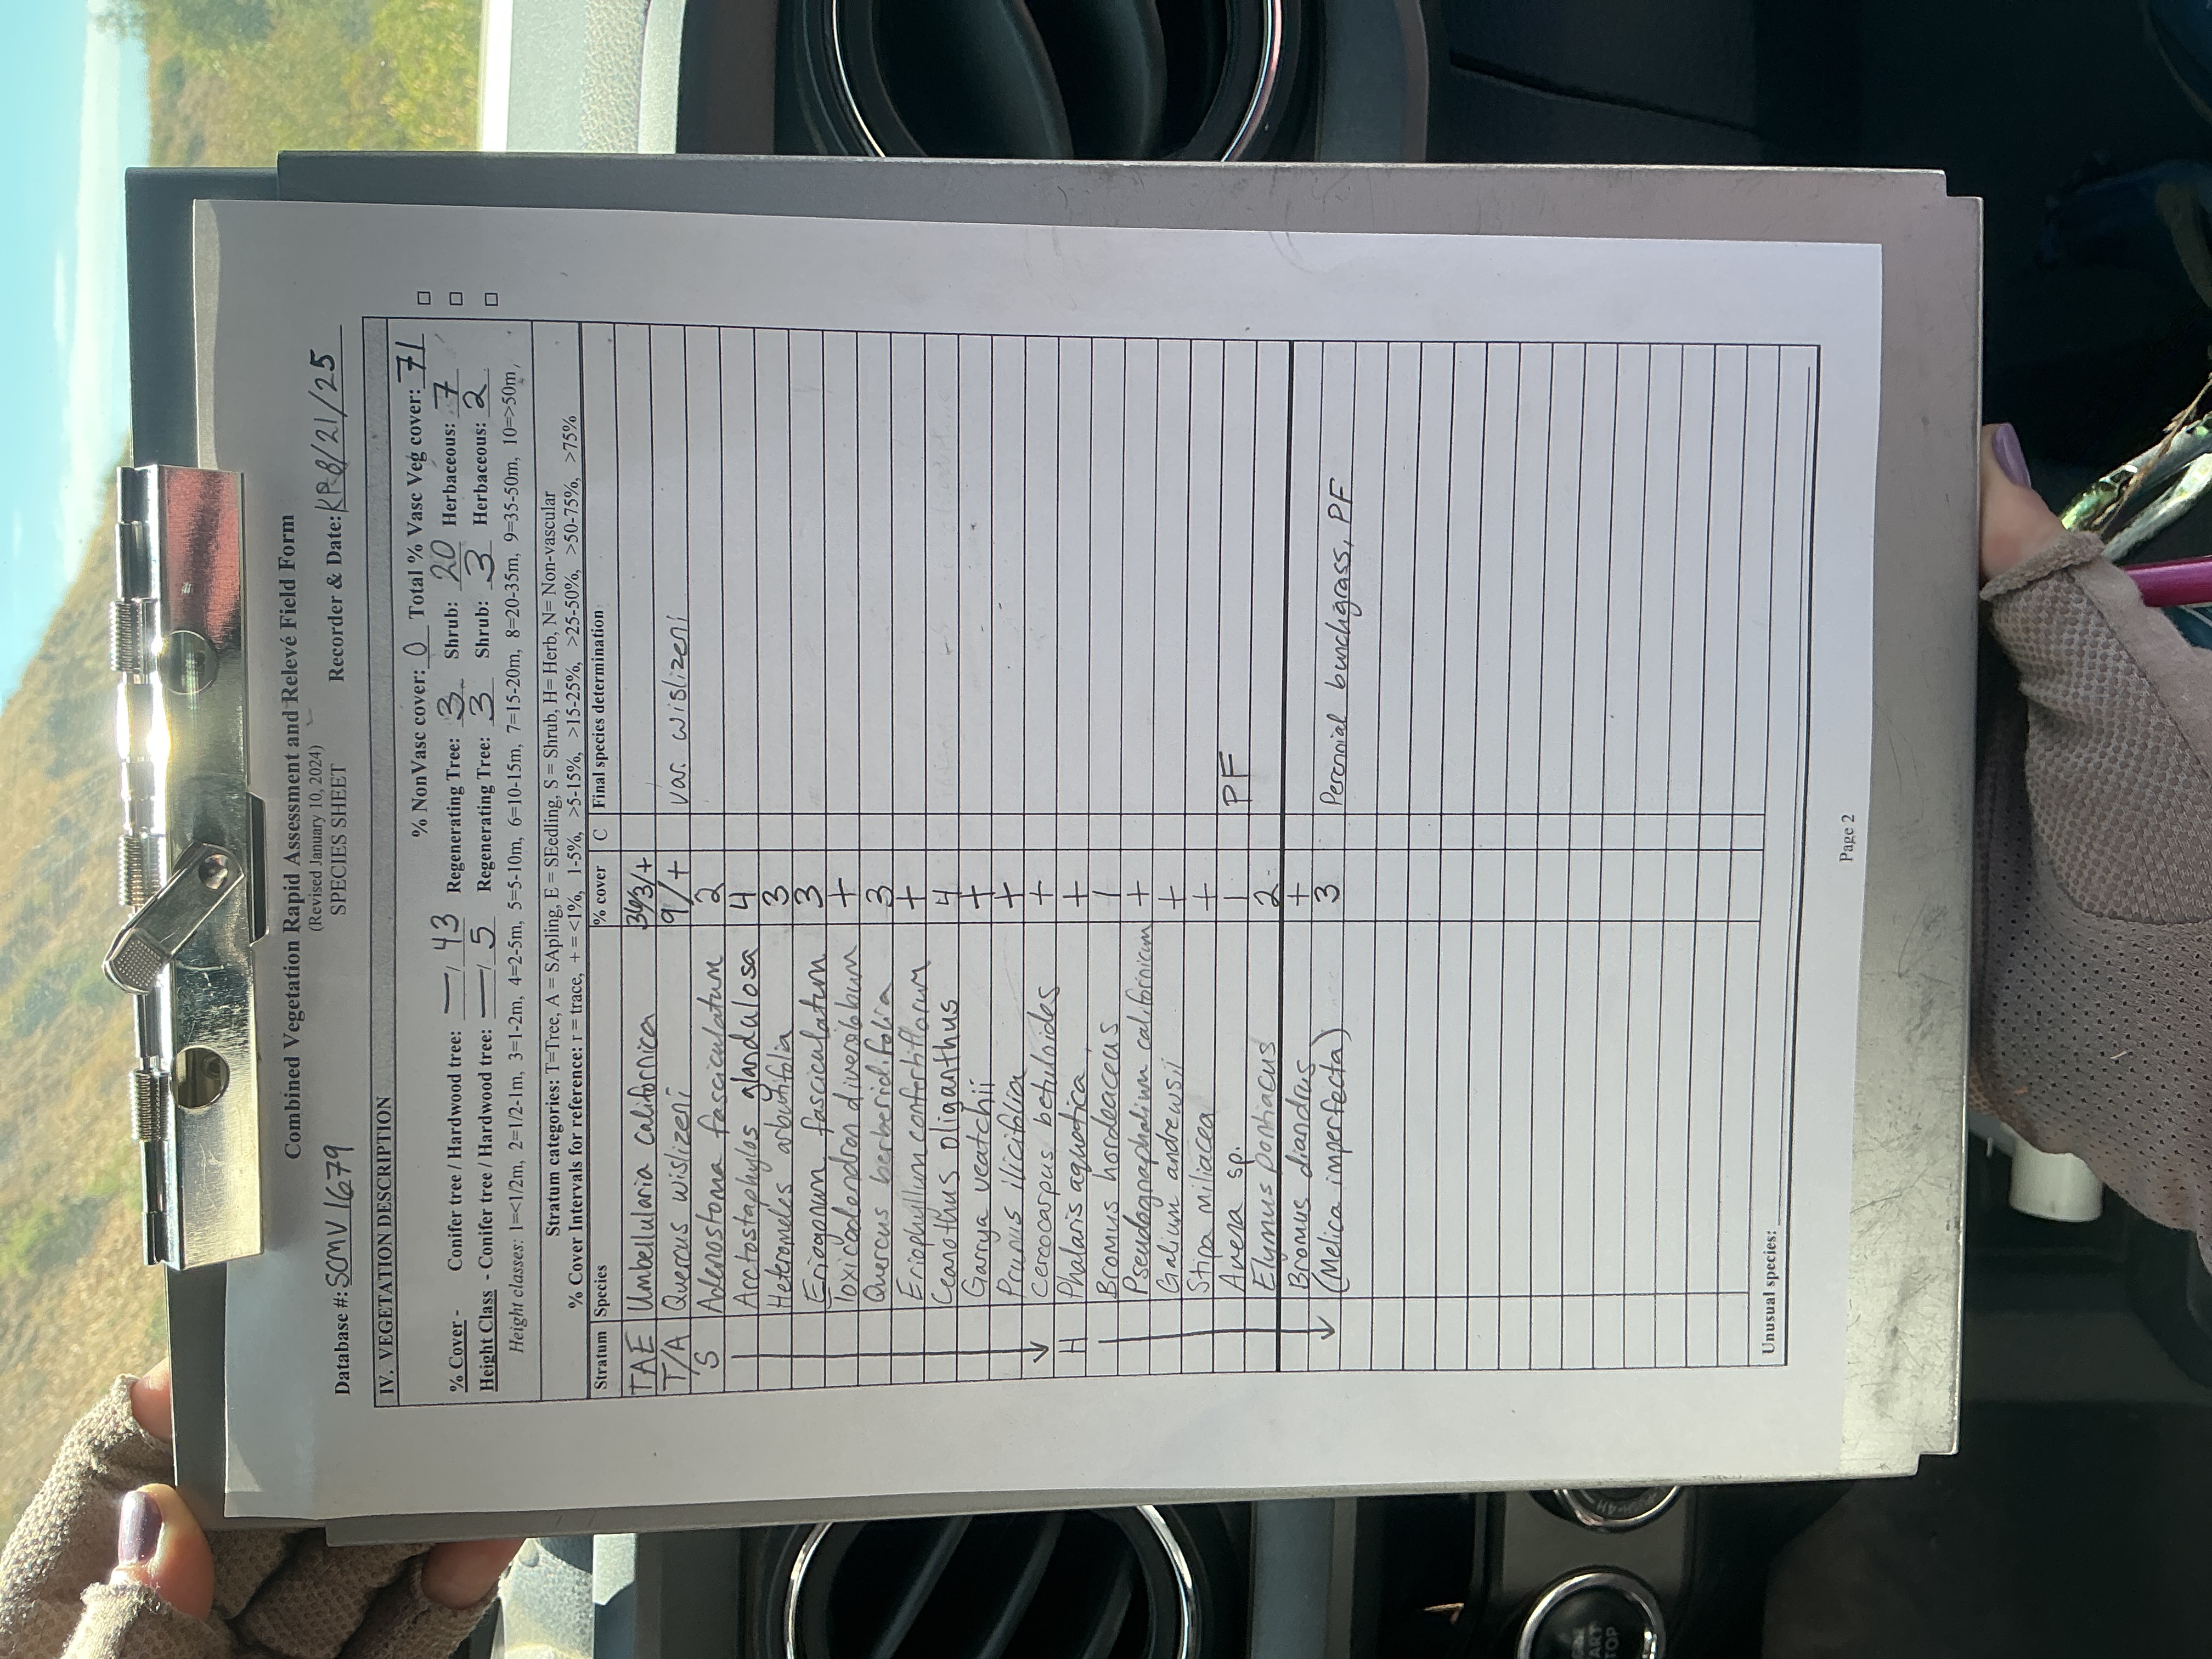 Combined Vegetation Rapid Assessment and Relevé Field Form
(Revised January 10, 2024)
SPECIES SHEET
Database #: SCMV1679 Recorder & Date: KP 8/21/25
IV. VEGETATION DESCRIPTION
% NonVasc cover: 0 Total % Vasc Veg cover: 71 □
% Cover - Conifer tree / Hardwood tree: — / 43 Regenerating Tree: 3 Shrub: 20 Herbaceous: 7 □
Height Class - Conifer tree / Hardwood tree: — / 5 Regenerating Tree: 3 Shrub: 3 Herbaceous: 2 □
Height classes: 1=<1/2m, 2=1/2-1m, 3=1-2m, 4=2-5m, 5=5-10m, 6=10-15m, 7=15-20m, 8=20-35m, 9=35-50m, 10=>50m,
Stratum categories: T=Tree, A = SApling, E = SEedling, S = Shrub, H= Herb, N= Non-vascular
% Cover Intervals for reference: r = trace, + = <1%, 1-5%, >5-15%, >15-25%, >25-50%, >50-75%, >75%
Stratum Species % cover C Final species determination
TAE Umbellularia californica 34/3/+
T/A Quercus wislizeni 9/+ var. wislizeni
S Adenostoma fasciculatum 2
Arctostaphylos glandulosa 4
Heteromeles arbutifolia 3
Eriogonum fasciculatum 3
Toxicodendron diversilobum +
Quercus berberidifolia 3
Eriophyllum confertiflorum +
Ceanothus oliganthus 4
Garrya veatchii +
Prunus ilicifolia +
Cercocarpus betuloides +
H Phalaris aquatica +
Bromus hordeaceus 1
Pseudognaphalium californicum +
Galium andrewsii +
Stipa miliacea +
Avena sp. 1 PF
Elymus ponticacus 2
Bromus diandrus +
(Melica imperfecta) 3 Perennial bunchgrass, PF
Unusual species:
Page 2
START
STOP